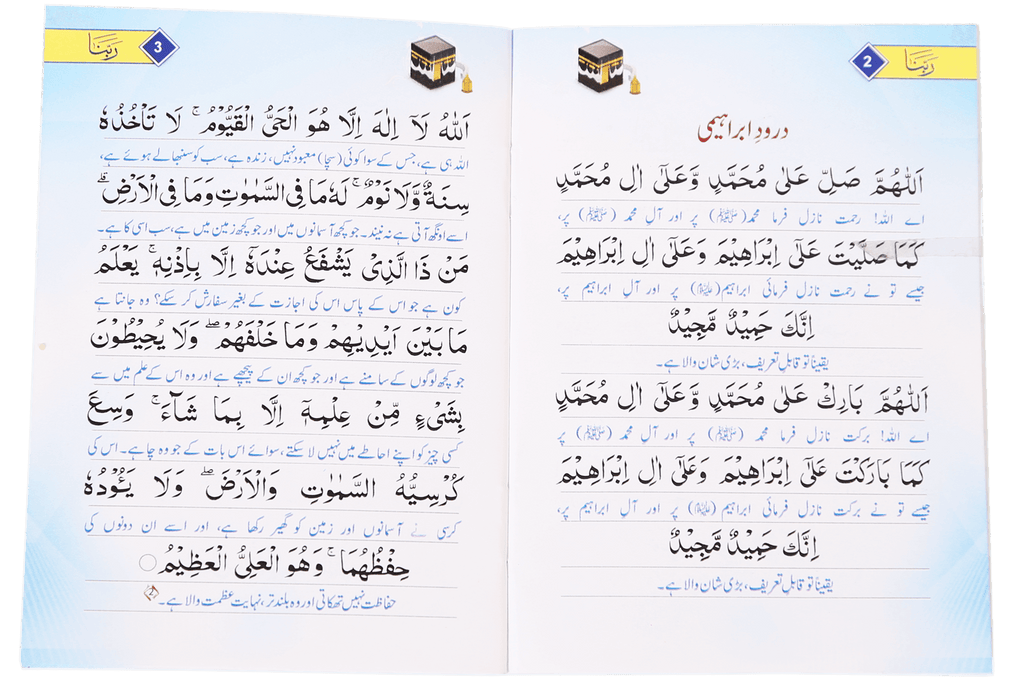 ربنا
2
درودِ ابراہیمی
اَللّٰهُمَّ صَلِّ عَلٰی مُحَمَّدٍ وَّعَلٰٓی اٰلِ مُحَمَّدٍ
اے اللہ! رحمت نازل فرما محمد (ﷺ) پر اور آلِ محمد (ﷺ) پر،
كَمَا صَلَّيْتَ عَلٰٓی اِبْرَاهِيْمَ وَعَلٰٓی اٰلِ اِبْرَاهِيْمَ
جیسے تو نے رحمت نازل فرمائی ابراہیم (علیہ السلام) پر اور آلِ ابراہیم پر،
اِنَّكَ حَمِيْدٌ مَّجِيْدٌ
یقیناً تو قابلِ تعریف، بڑی شان والا ہے۔
اَللّٰهُمَّ بَارِكْ عَلٰی مُحَمَّدٍ وَّعَلٰٓی اٰلِ مُحَمَّدٍ
اے اللہ! برکت نازل فرما محمد (ﷺ) پر اور آلِ محمد (ﷺ) پر
كَمَا بَارَكْتَ عَلٰٓی اِبْرَاهِيْمَ وَعَلٰٓی اٰلِ اِبْرَاهِيْمَ
جیسے تو نے برکت نازل فرمائی ابراہیم (علیہ السلام) پر اور آلِ ابراہیم پر،
اِنَّكَ حَمِيْدٌ مَّجِيْدٌ
یقیناً تو قابلِ تعریف، بڑی شان والا ہے۔
ربنا
3
اَللّٰهُ لَآ اِلٰهَ اِلَّا هُوَ الْحَیُّ الْقَيُّوْمُ ۚ لَا تَاْخُذُهٗ
اللہ ہی ہے، جس کے سوا کوئی (سچا) معبود نہیں، زندہ ہے، سب کو سنبھالے ہوئے ہے،
سِنَةٌ وَّلَا نَوْمٌ ۚ لَهٗ مَا فِی السَّمٰوٰتِ وَمَا فِی الْاَرْضِ ۗ
اسے اونگھ آتی ہے نہ نیند۔ جو کچھ آسمانوں میں اور جو کچھ زمین میں ہے، سب اسی کا ہے۔
مَنْ ذَا الَّذِیْ يَشْفَعُ عِنْدَهٗٓ اِلَّا بِاِذْنِهٖ ۚ يَعْلَمُ
کون ہے جو اس کے پاس اس کی اجازت کے بغیر سفارش کر سکے؟ وہ جانتا ہے
مَا بَيْنَ اَيْدِيْهِمْ وَمَا خَلْفَهُمْ ۖ وَلَا يُحِيْطُوْنَ
جو کچھ لوگوں کے سامنے ہے اور جو کچھ ان کے پیچھے ہے اور وہ اس کے علم میں سے
بِشَیْءٍ مِّنْ عِلْمِهٖٓ اِلَّا بِمَا شَآءَ ۚ وَسِعَ
کسی چیز کو اپنے احاطے میں نہیں لا سکتے، سوائے اس بات کے جو وہ چاہے۔ اس کی
كُرْسِيُّهُ السَّمٰوٰتِ وَالْاَرْضَ ۖ وَلَا يَـُٔوْدُهٗ
کرسی نے آسمانوں اور زمین کو گھیر رکھا ہے، اور اسے ان دونوں کی
حِفْظُهُمَا ۚ وَهُوَ الْعَلِیُّ الْعَظِيْمُ ○
حفاظت نہیں تھکاتی اور وہ بلند تر، نہایت عظمت والا ہے۔